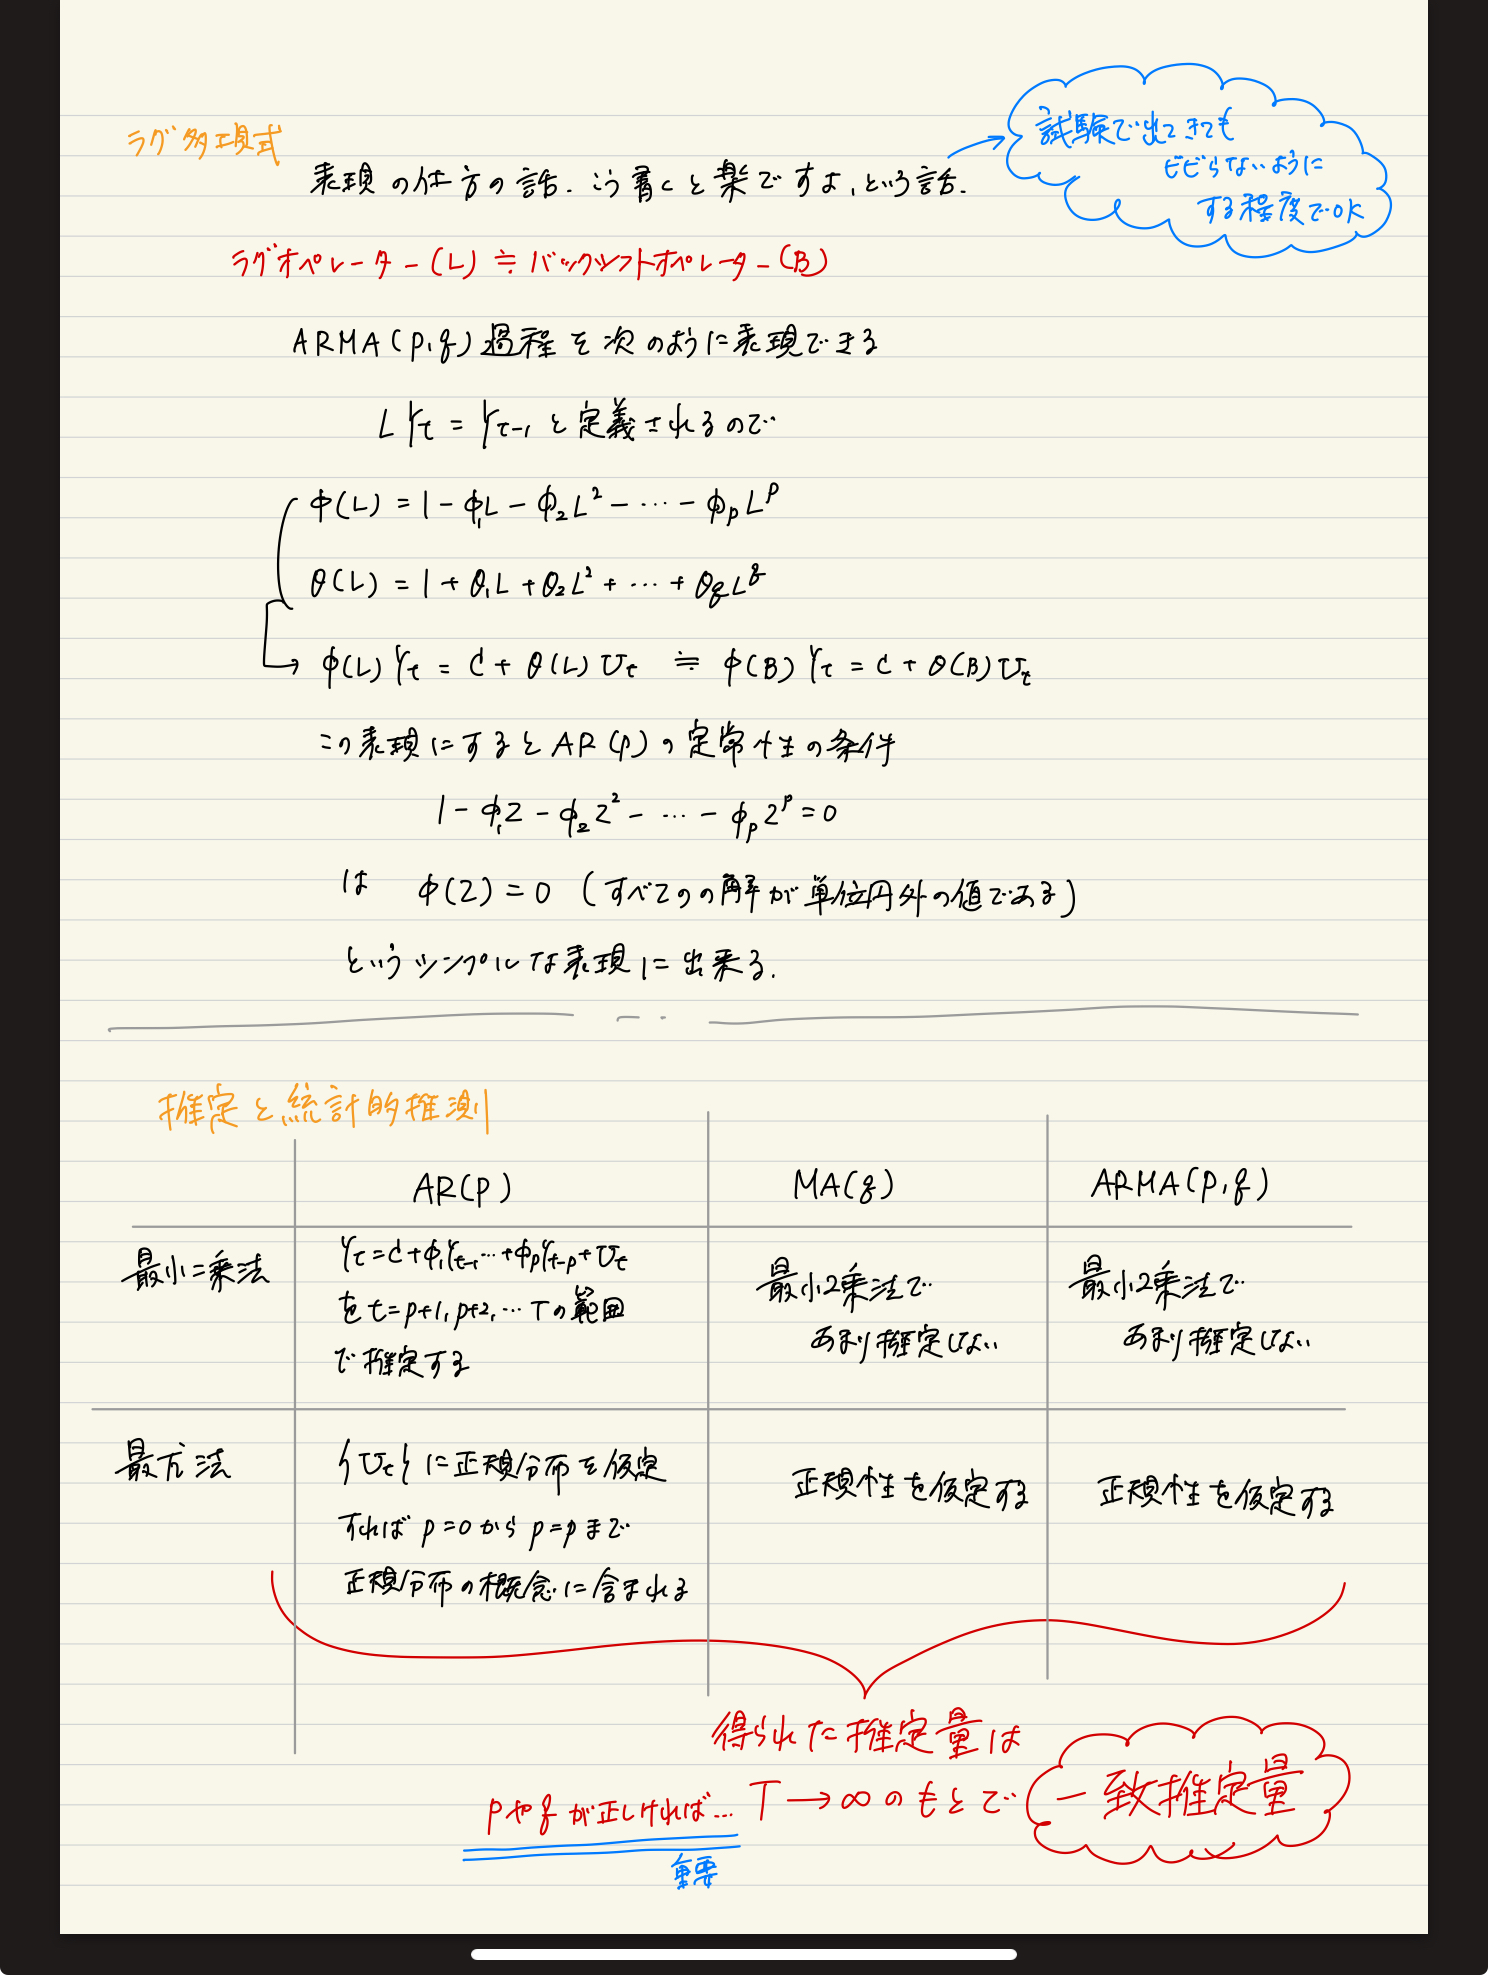 ラグ多項式
試験で出てきても
ビビらないように
する程度でOK
表現の仕方の話. こう書くと楽ですよ, という話.
ラグオペレーター(L) ≒ バックシフトオペレーター(B)
ARMA(p,q)過程を次のように表現できる
LYt = Yt-1 と定義されるので
φ(L) = 1 - φ1L - φ2L² - … - φpL^p
θ(L) = 1 + θ1L + θ2L² + … + θqL^q
→ φ(L)Yt = C + θ(L)Ut ≒ φ(B)Yt = C + θ(B)Ut
この表現にするとAR(p)の定常性の条件
1 - φ1Z - φ2Z² - … - φpZ^p = 0
は φ(Z) = 0 (すべての解が単位円外の値である)
というシンプルな表現に出来る.
推定と統計的推測
AR(p) MA(q) ARMA(p,q)
最小二乗法
Yt = C + φ1Yt-1 … + φpYt-p + Ut
を t = p+1, p+2, … T の範囲
で推定する
最小2乗法で
あまり推定しない
最小2乗法で
あまり推定しない
最尤法
{Ut}に正規分布を仮定
すれば p=0 から p=p まで
正規分布の概念に含まれる
正規性を仮定する
正規性を仮定する
得られた推定量は
pやqが正しければ… T → ∞ のもとで 一致推定量
重要